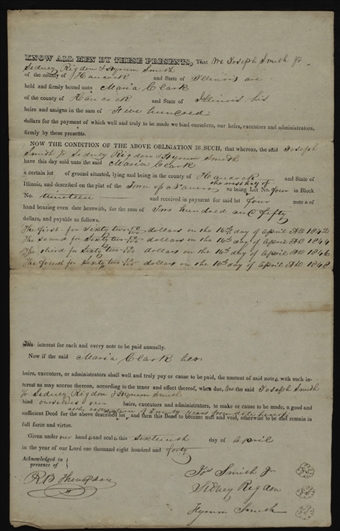 KNOW ALL MEN BY THESE PRESENTS, That We Joseph Smith Jr
Sidney Rigdon & Hyrum Smith
of the county of Hancock and State of Illinois are
held and firmly bound unto Maria Clark
of the county of Hancock and State of Illinois his
in the sum of Five hundred
dollars for the payment of which well and truly to be made we bind ourselves, our heirs, executors and administrators,
firmly by these presents.
NOW THE CONDITION OF THE ABOVE OBLIGATION IS SUCH, that whereas, the said Joseph
Smith Jr Sidney Rigdon & Hyrum Smith
have this day sold unto the said Maria Clark
a certain lot of ground situated, lying and being in the county of Hancock
Illinois, and described on the plat of the Town of being lot No four in Block
No nineteen and received in payment for said lot four note s of
hand bearing even date herewith, for the sum of Two hundred and fifty
dollars, and payable as follows.
The first for Sixty two dollars on the 16th day of April A.D. 1842
The second for Sixty two dollars on the 16th day of April A.D. 1844
The third for Sixty two dollars on the 16th day of April A.D. 1846
The fourth for Sixty two dollars on the 16th day of April A.D. 1848
interest for each and every note to be paid annually.
Now if the said Maria Clark her
heirs, executors, or administrators shall well and truly pay or cause to be paid, the amount of said notes, with such in-
terest as may accrue thereon, according to the tenor and effect thereof, when due, the said Joseph Smith
Jr Sidney Rigdon & Hyrum Smith
ourselves & our heirs, executors and administrators, to make or cause to be made, a good and
sufficient Deed for the above described lot, and then this Bond to become null and void, otherwise to be and remain in
full force and virtue.
Given under our hands and seals this sixteenth day of April
in the year of our Lord one thousand eight hundred and forty
Acknowledged in
presence of
R B Thompson
Js Smith Jr
Sidney Rigdon
Hyrum Smith